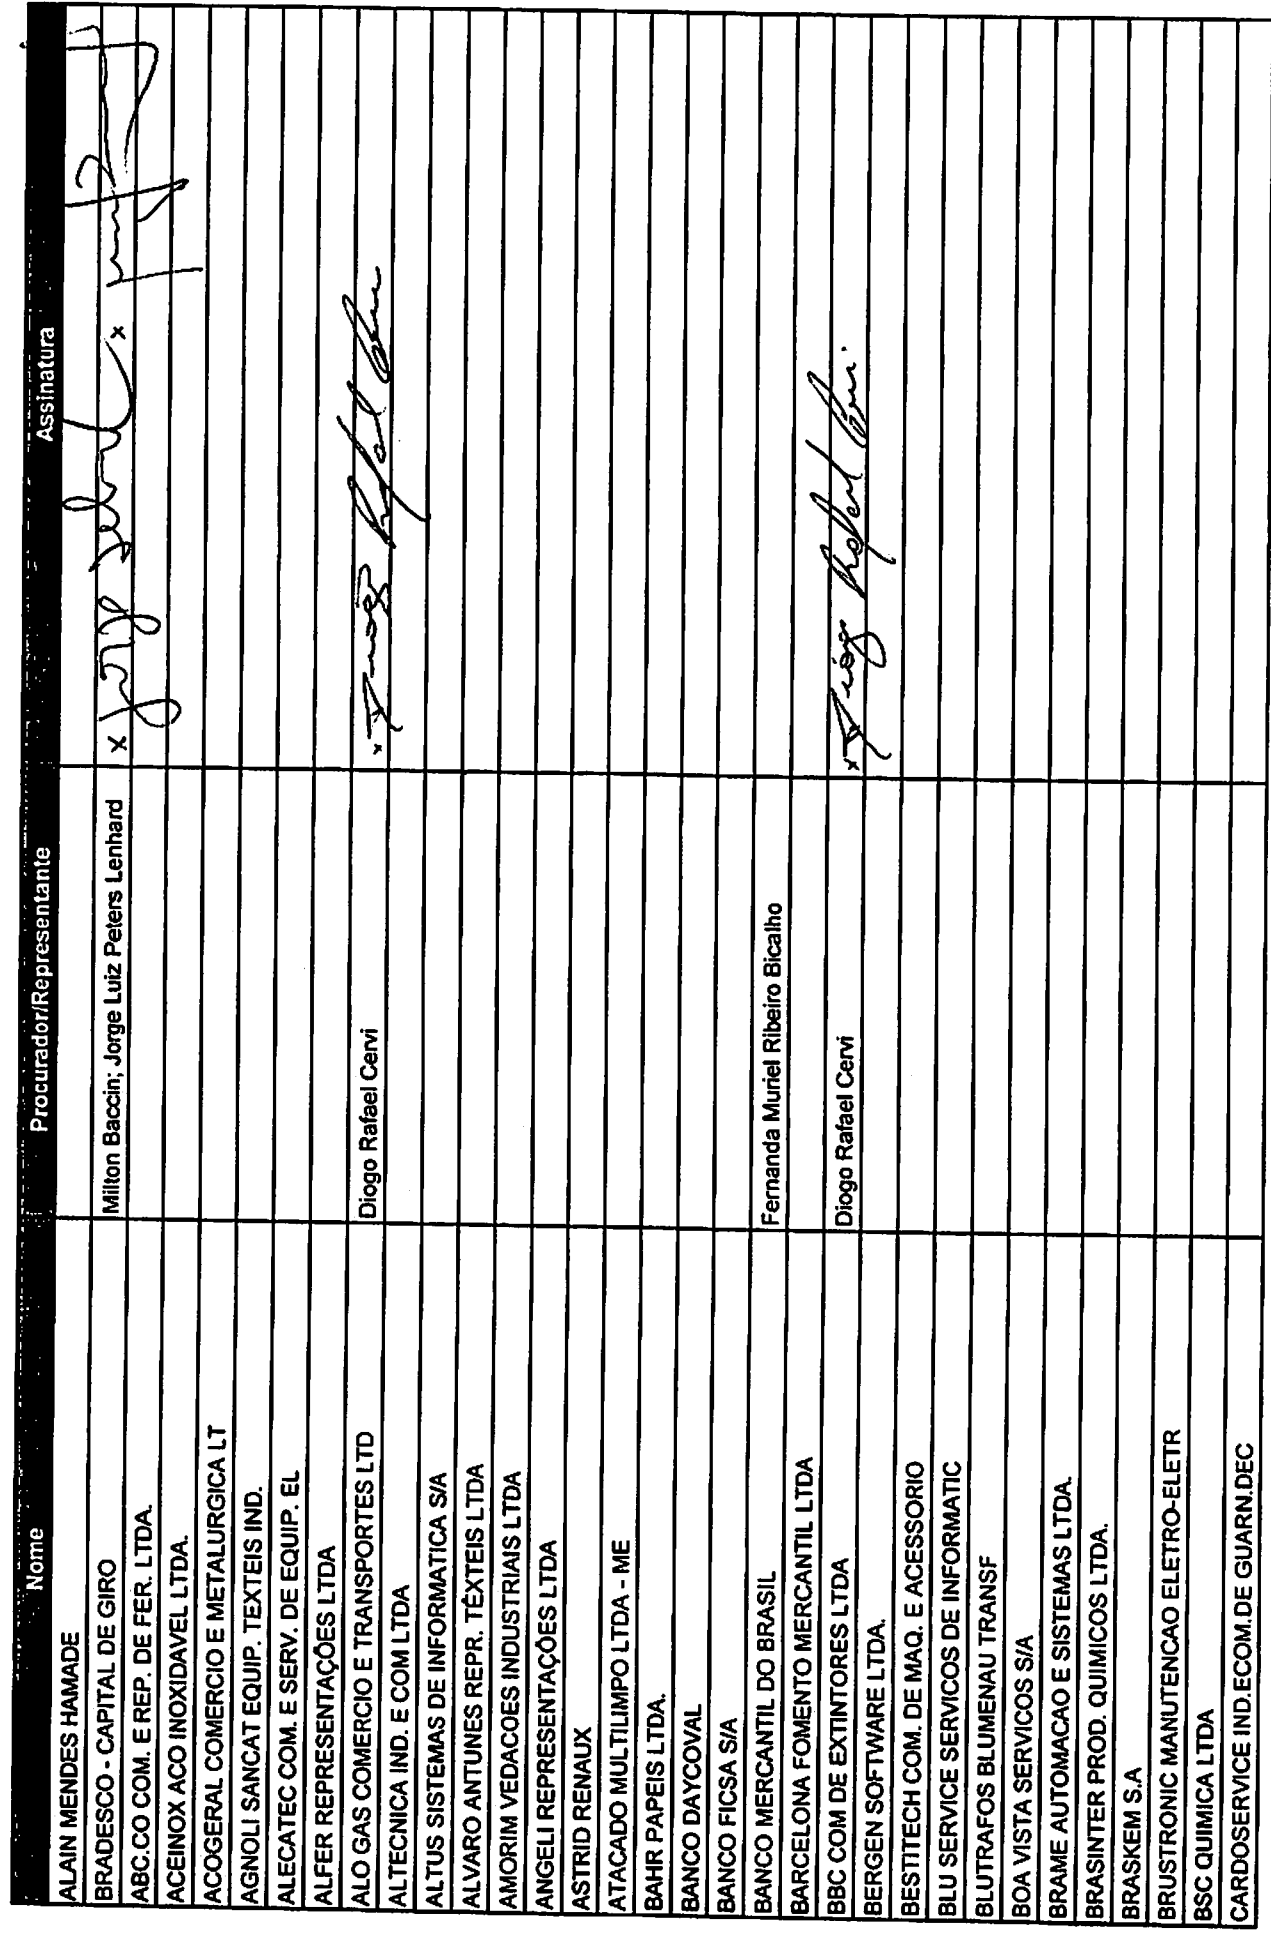 Nome Procurador/Representante Assinatura
ALAIN MENDES HAMADE
BRADESCO - CAPITAL DE GIRO Milton Baccin; Jorge Luiz Peters Lenhard x x
ABC.CO COM. E REP. DE FER. LTDA.
ACEINOX ACO INOXIDAVEL LTDA.
ACOGERAL COMERCIO E METALURGICA LT
AGNOLI SANCAT EQUIP. TEXTEIS IND.
ALECATEC COM. E SERV. DE EQUIP. EL
ALFER REPRESENTAÇÕES LTDA
ALO GAS COMERCIO E TRANSPORTES LTD Diogo Rafael Cervi x Diogo Rafael Cervi
ALTECNICA IND. E COM LTDA
ALTUS SISTEMAS DE INFORMATICA S/A
ALVARO ANTUNES REPR. TÊXTEIS LTDA
AMORIM VEDACOES INDUSTRIAIS LTDA
ANGELI REPRESENTAÇÕES LTDA
ASTRID RENAUX
ATACADO MULTILIMPO LTDA - ME
BAHR PAPEIS LTDA.
BANCO DAYCOVAL
BANCO FICSA S/A
BANCO MERCANTIL DO BRASIL Fernanda Muriel Ribeiro Bicalho
BARCELONA FOMENTO MERCANTIL LTDA
BBC COM DE EXTINTORES LTDA Diogo Rafael Cervi x Diogo Rafael Cervi
BERGEN SOFTWARE LTDA.
BESTITECH COM. DE MAQ. E ACESSORIO
BLU SERVICE SERVICOS DE INFORMATIC
BLUTRAFOS BLUMENAU TRANSF
BOA VISTA SERVICOS S/A
BRAME AUTOMACAO E SISTEMAS LTDA.
BRASINTER PROD. QUIMICOS LTDA.
BRASKEM S.A
BRUSTRONIC MANUTENCAO ELETRO-ELETR
BSC QUIMICA LTDA
CARDOSERVICE IND.ECOM.DE GUARN.DEC